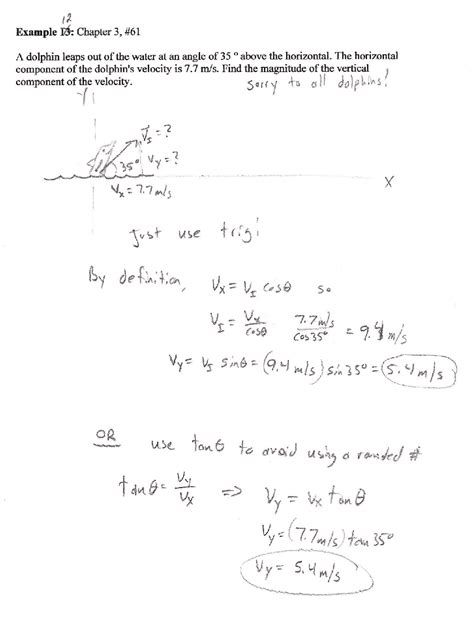 12
Example 13: Chapter 3, #61
A dolphin leaps out of the water at an angle of 35 ° above the horizontal. The horizontal
component of the dolphin's velocity is 7.7 m/s. Find the magnitude of the vertical
component of the velocity.
Sorry to all dolphins!
Y
V⃗_I = ?
35° V_y = ?
V_x = 7.7 m/s
X
Just use trig!
By definition, V_x = V_I cosθ so
V_I = V_x/cosθ 7.7 m/s/cos 35° = 9.4 m/s
V_y = V_I sinθ = (9.4 m/s) sin 35° = 5.4 m/s
OR use tanθ to avoid using a rounded #
tanθ = V_y/V_x => V_y = V_x tanθ
V_y = (7.7 m/s) tan 35°
V_y = 5.4 m/s